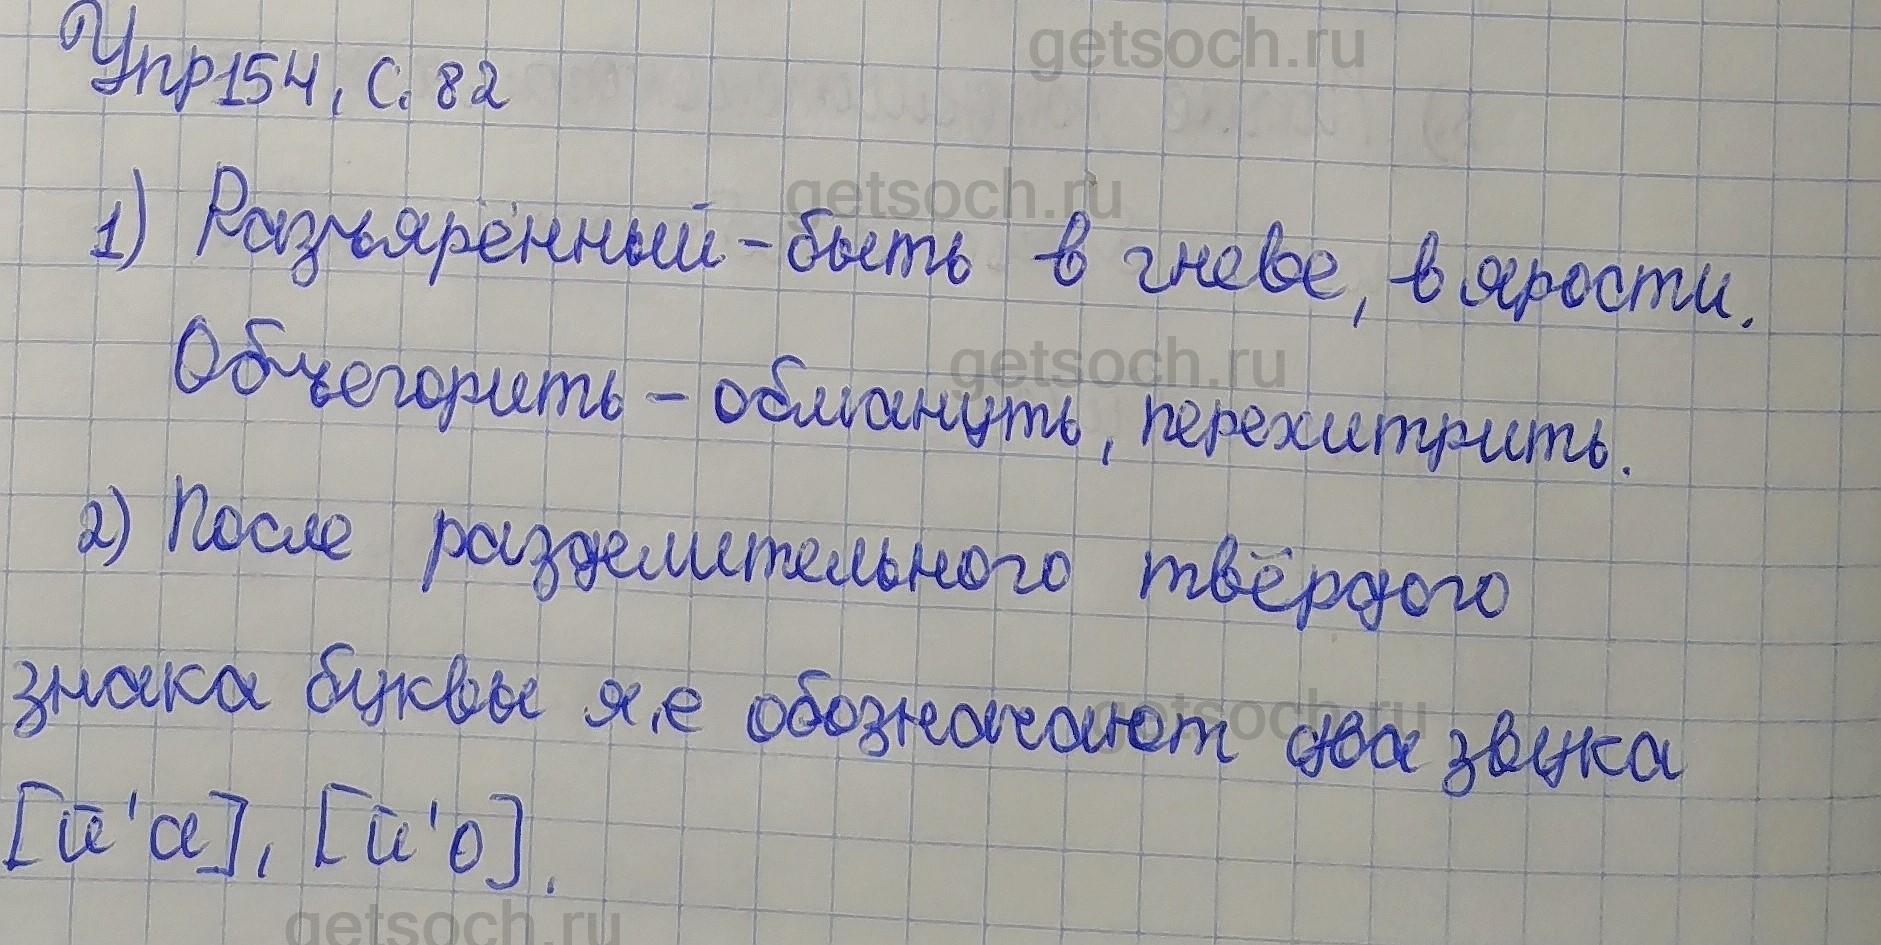 getsoch.ru
Упр154, с. 82
getsoch.ru
1) Разъярённый - быть в гневе, в ярости.
getsoch.ru
Объегорить - обмануть, перехитрить.
2) После разделительного твёрдого
знака буквы я, е обозначают два звука
getsoch.ru
[й'а], [й'о].
getsoch.ru